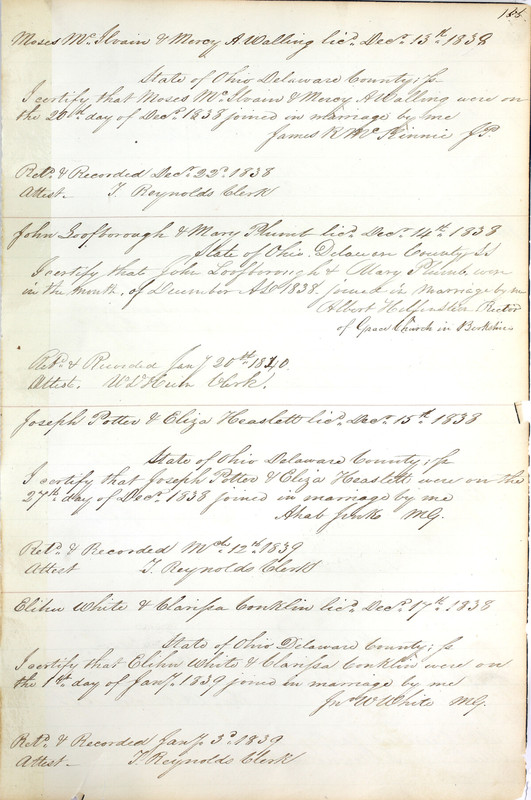 Moses McIlvain & Mercy A. Walling licd. Decr. 13th. 1838
State of Ohio Delaware County; ss
I certify that Moses McIlvain & Mercy A Walling were on
the 20th day of Decr. 1838 joined in marriage by me
James R McKinnie J.P.
Retd. & Recorded Decr. 22d. 1838
Attest. T. Reynolds Clerk
John Loofborough & Mary Plumb licd. Decr. 14th. 1838
State of Ohio. Delawer County Ss
I certify that John Loofborough & Mary Plumb wer
in the month, of December A.D. 1838. joined in marriage by me
Albert Helfenstein Rector
of Grace Church in Berkshire
Retd. & Recorded Jany 20th 1840.
Attest. Clerk.
Joseph Potter & Eliza Heaslett licd. Decr. 15th. 1838
State of Ohio Delaware County; ss
I certify that Joseph Potter & Eliza Heaslett were on the
27th. day of Decr. 1838 joined in marriage by me
Ahab Jinks MG.
Retd. & Recorded Mch. 12th. 1839
Attest T. Reynolds Clerk
Elihu White & Clarissa Conklin licd. Decr. 17th. 1838
State of Ohio Delaware County; ss
I certify that Elihu White & Clarissa Conklin were on
the 1st. day of Jany. 1839 joined in marriage by me
Jno W White MG.
Retd. & Recorded Jany. 3d. 1839
Attest T. Reynolds Clerk